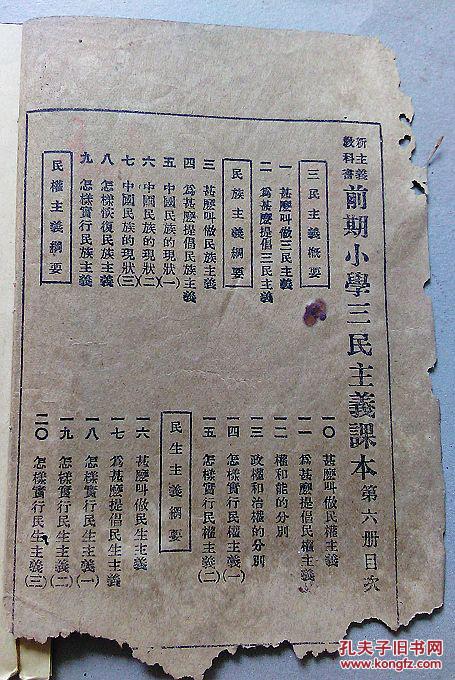 新主義
教科書
前期小學三民主義課本 第六册目次
三民主義概要
一 甚麼叫做三民主義
二 爲甚麼提倡三民主義
民族主義綱要
三 甚麼叫做民族主義
四 爲甚麼提倡民族主義
五 中國民族的現狀(一)
六 中國民族的現狀(二)
七 中國民族的現狀(三)
八 怎樣恢復民族主義
九 怎樣實行民族主義
民權主義綱要
一〇 甚麼叫做民權主義
一一 爲甚麼提倡民權主義
一二 權和能的分別
一三 政權和治權的分別
一四 怎樣實行民權主義(一)
一五 怎樣實行民權主義(二)
民生主義綱要
一六 甚麼叫做民生主義
一七 爲甚麼提倡民生主義
一八 怎樣實行民生主義(一)
一九 怎樣實行民生主義(二)
二〇 怎樣實行民生主義(三)
孔夫子旧书网
www.kongfz.com